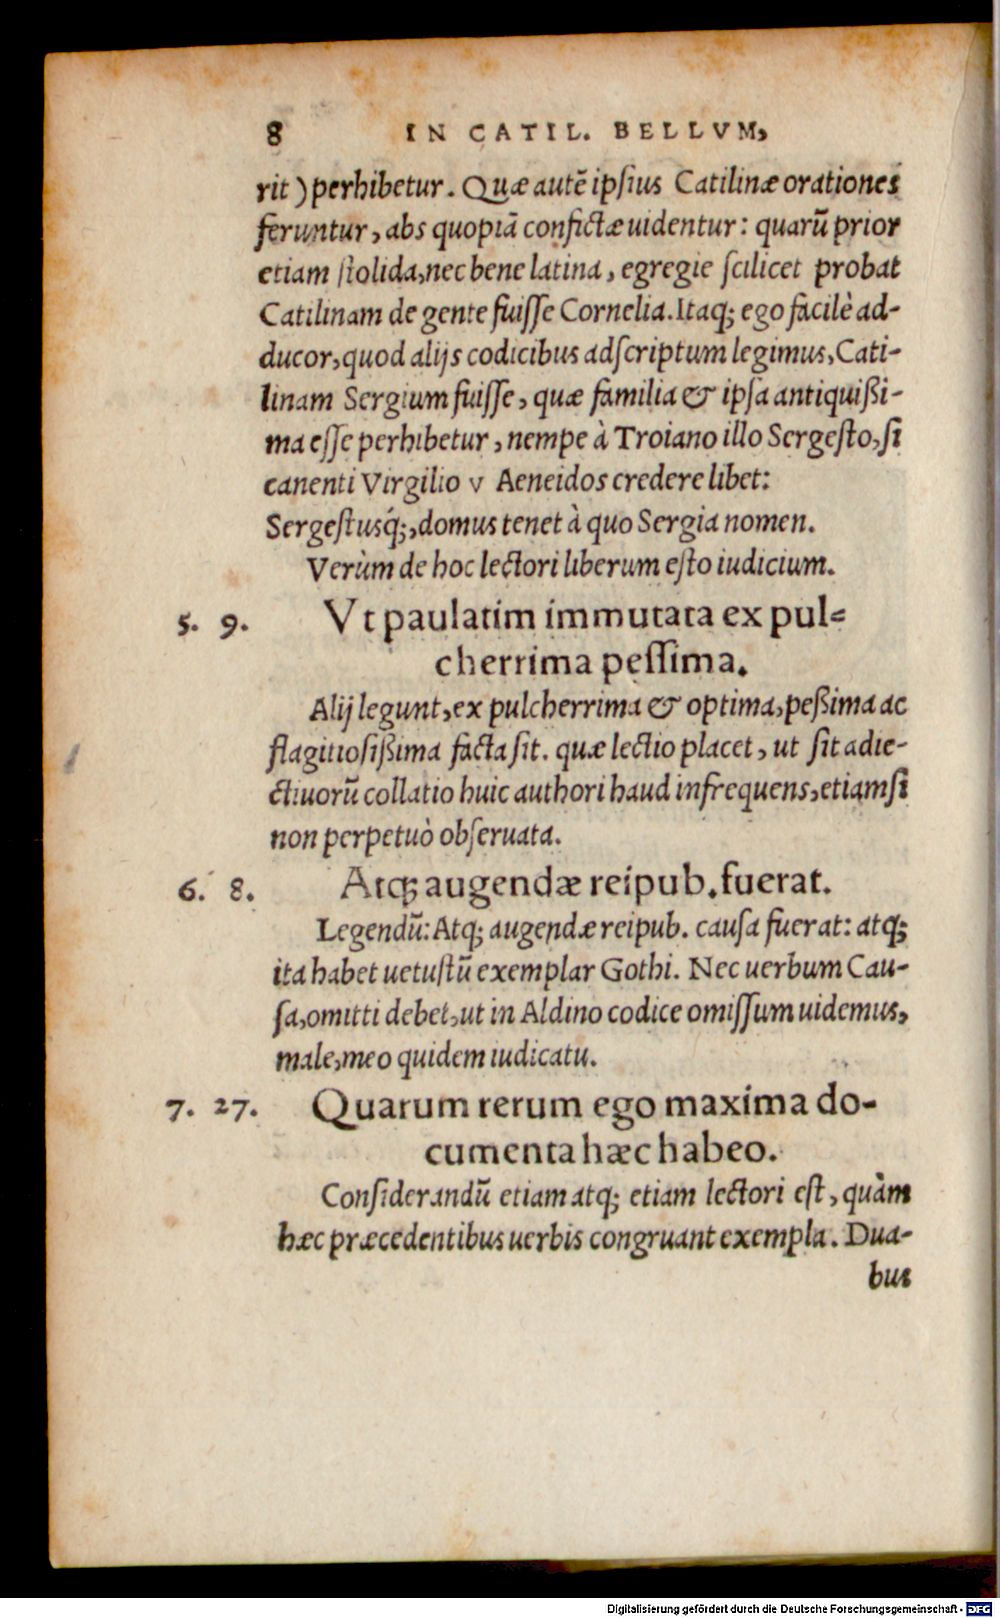 8 IN CATIL. BELLVM,
rit) perhibetur. Quæ autē ipſius Catilinæ orationes
feruntur, abs quopiā confictæ uidentur: quarū prior
etiam ſtolida, nec bene latina, egregie ſcilicet probat
Catilinam de gente fuiſſe Cornelia. Itaq; ego facilè ad-
ducor, quod alijs codicibus adſcriptum legimus, Cati-
linam Sergium fuiſſe, quæ familia & ipſa antiquißi-
ma eſſe perhibetur, nempe à Troiano illo Sergeſto, ſi
canenti Virgilio v Aeneidos credere libet:
Sergeſtusq́;, domus tenet à quo Sergia nomen.
Verùm de hoc lectori liberum eſto iudicium.
5. 9. Vt paulatim immutata ex pul=
cherrima peſſima.
Alij legunt, ex pulcherrima & optima, peßima ac
flagitioſißima facta ſit. quæ lectio placet, ut ſit adie-
ctiuorū collatio huic authori haud infrequens, etiamſi
non perpetuò obſeruata.
6. 8. Atq; augendæ reipub. fuerat.
Legendū: Atq; augendæ reipub. cauſa fuerat: atq;
ita habet uetuſtū exemplar Gothi. Nec uerbum Cau-
ſa, omitti debet, ut in Aldino codice omiſſum uidemus,
male, meo quidem iudicatu.
7. 27. Quarum rerum ego maxima do-
cumenta hæc habeo.
Conſiderandū etiam atq; etiam lectori eſt, quàm
hæc præcedentibus uerbis congruant exempla. Dua-
bus
Digitalisierung gefördert durch die Deutsche Forschungsgemeinschaft - DFG